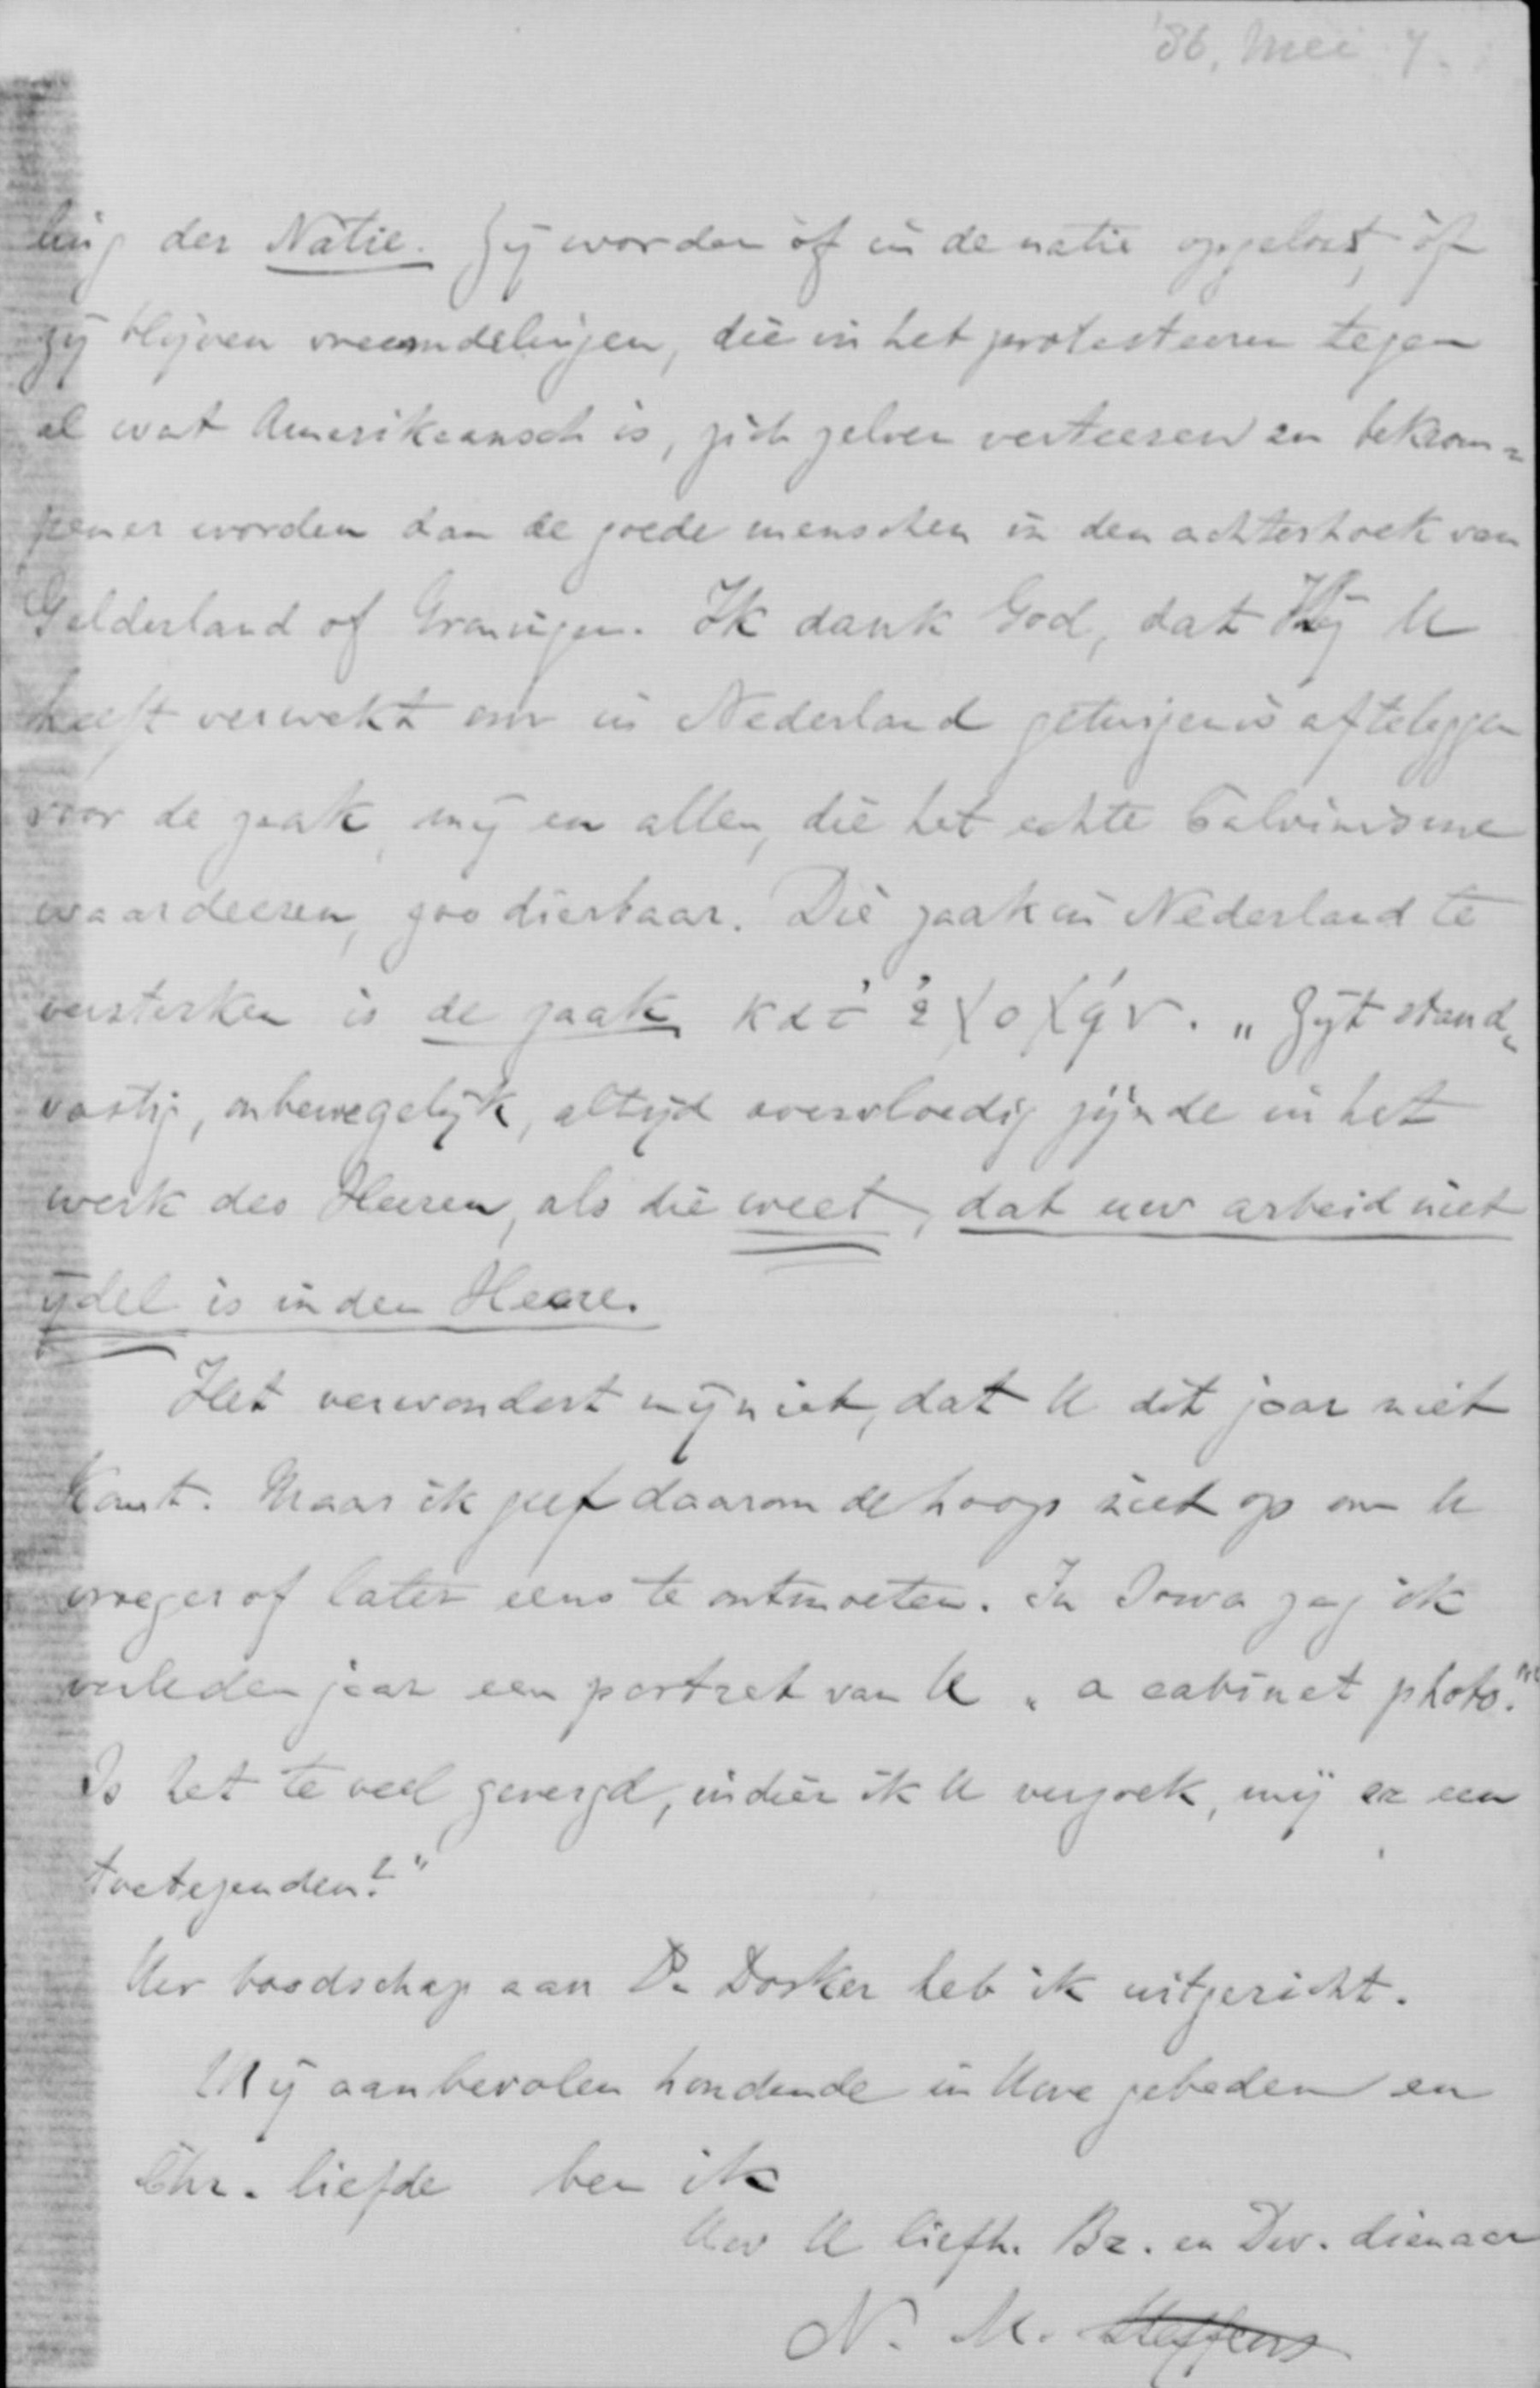 '86, Mei 7.
ling der Natie. Zij worden òf in de natie opgelost, òf
zij blijven vreemdelingen, die in het protesteeren tegen
al wat Amerikaansch is, zich zelven verteeren en bekrom=
pener worden dan de goede menschen in den achterhoek van
Gelderland of Groningen. Ik dank God, dat Hij U
heeft verwekt om in Nederland getuigenis afteleggen
voor de zaak, mij en allen, die het echte Calvinisme
waardeeren, zoo dierbaar. Die zaak in Nederland te
versterken is de zaak κατ' ἐξοχήν. „Zijt stand„
vastig, onbewegelijk, altijd overvloedig zijnde in het
werk des Heeren, als die weet, dat uw arbeid niet
ijdel is in den Heere.
Het verwondert mij niet, dat U dit jaar niet
komt. Maar ik geef daarom de hoop niet op om U
vroeger of later eens te ontmoeten. In Iowa zag ik
verleden jaar een portret van U „a cabinet photo."
Is het te veel gevergd, indien ik U verzoek, mij er een
toetezenden?"
Uw boodschap aan Ds Dosker heb ik uitgericht.
Mij aanbevolen houdende in Uwe gebeden en
Chr. liefde ben ik
Uw U liefh. Br. en Dw. dienaar
N. M. Steffens